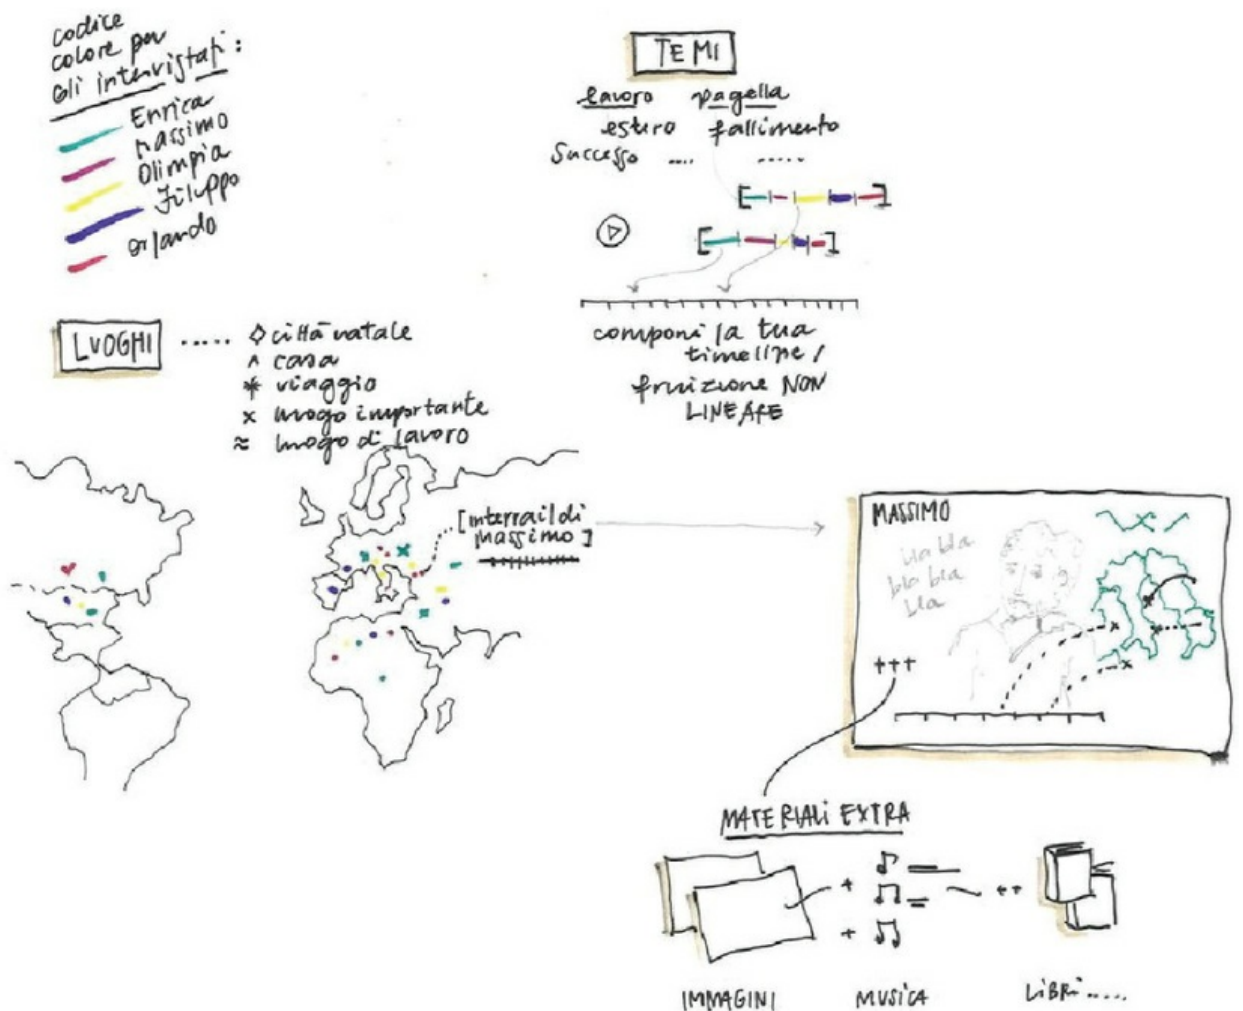 codice
colore per
gli intervistati:
Enrica
Massimo
Olimpia
Filippo
Orlando
TEMI
lavoro pagella
estero fallimento
Successo .... .....
componi la tua
timeline /
fruizione NON
LINEARE
LUOGHI ..... città natale
casa
viaggio
luogo importante
luogo di lavoro
[interrail di
Massimo]
MASSIMO
bla bla
bla bla
bla
+++
MATERIALI EXTRA
+
++
+
IMMAGINI MUSICA LIBRI .....